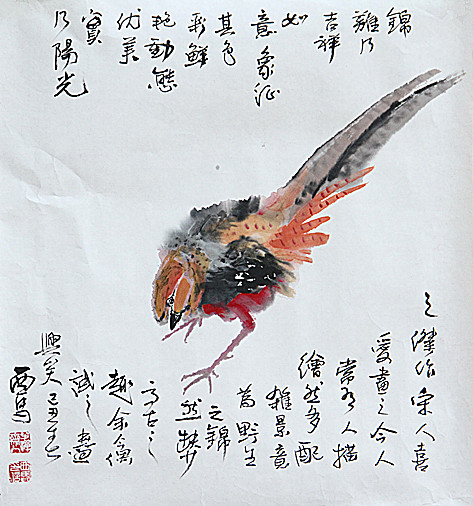 錦
雞乃
吉祥
如
意象征
其色
彩鮮
艷動態
优美
實
乃陽光
之傑作宋人喜
愛畫之今人
常人描
繪然多配
雜景竟
為野生
之錦
然
高古之
趣余
試之畫
興矣己丑